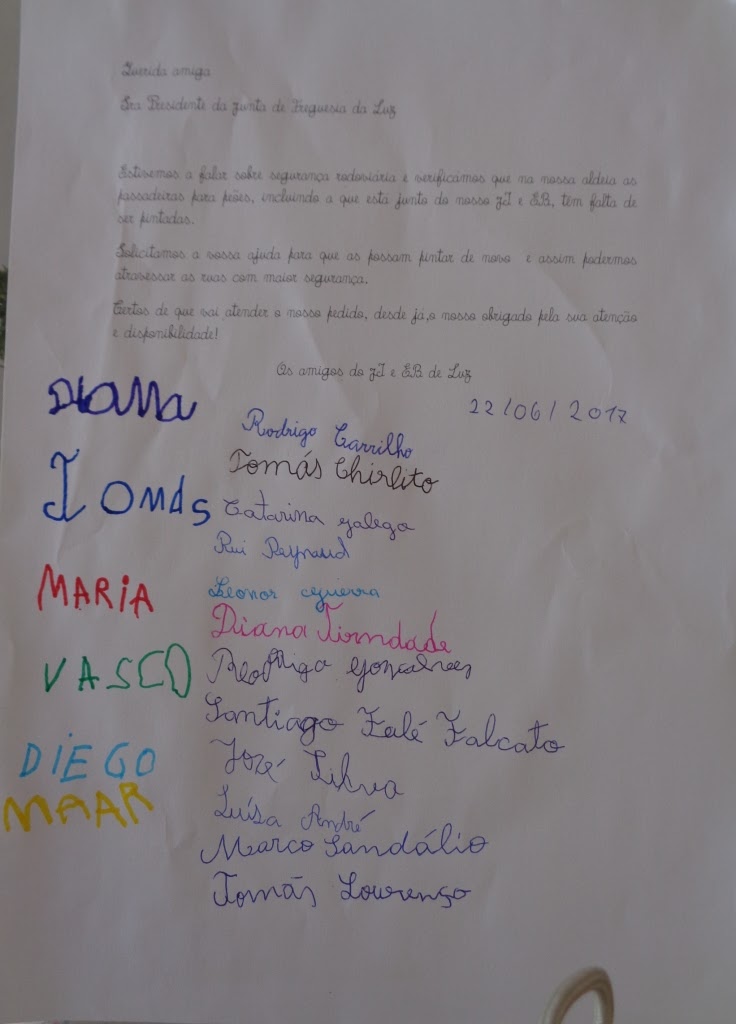 Querida amiga
Sra Presidente da Junta de Freguesia da Luz
Estivemos a falar sobre segurança rodoviária e verificámos que na nossa aldeia as
passadeiras para peões, incluindo a que está junto do nosso JI e EB, têm falta de
ser pintadas.
Solicitamos a vossa ajuda para que as possam pintar de novo e assim podermos
atravessar as ruas com maior segurança.
Certos de que vai atender o nosso pedido, desde já,o nosso obrigado pela sua atenção
e disponibilidade!
Os amigos do JI e EB de Luz
22/06/2017
Diana
Rodrigo Carrilho
Tomás Chirlito
Tomás
Catarina galego
Rui Reynaud
MARiA
Leonor
Diana Tirndade
VASCO
Rodrigo gonçalves
Santiago Zalé Falcato
DiEGO
José Silva
MAAR
Luísa André
Marco Sandálio
Tomás Lourenço